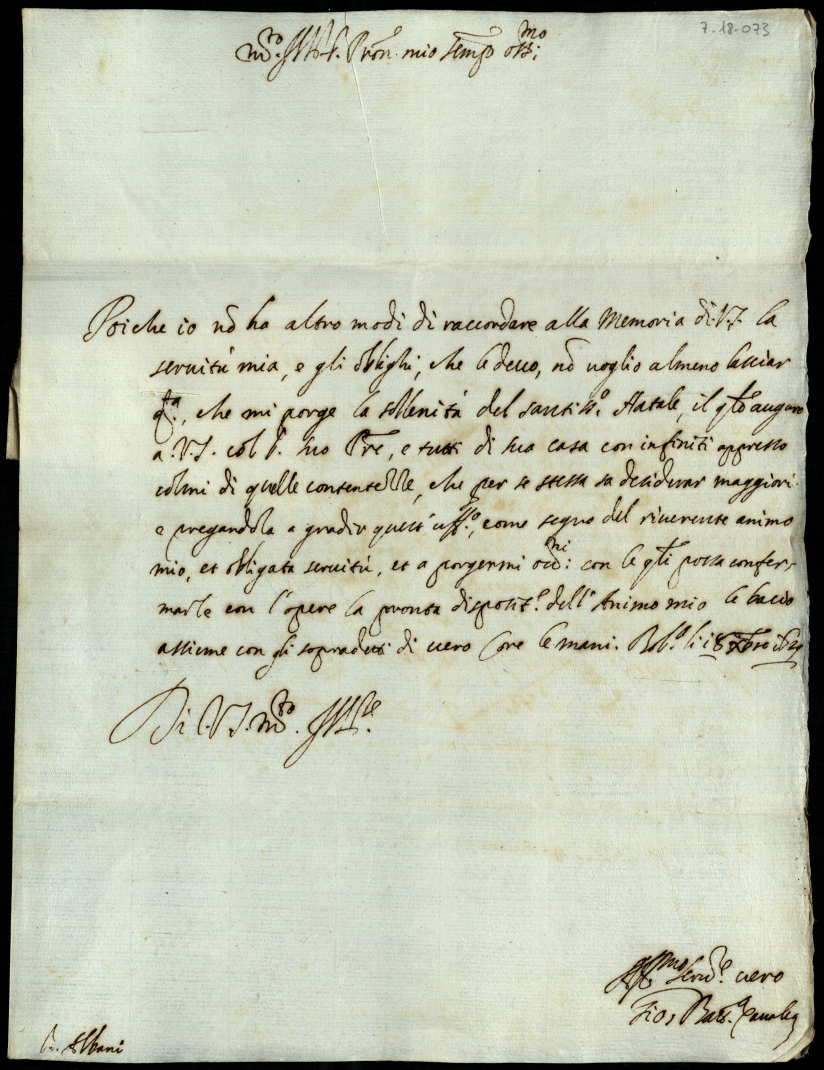 7-18-073
m.to Ill.re S.r Pron. mio semp.o oss.mo
Poiche io nõ ho altro modi di raccordare alla Memoria di V.S. la
seruitú mia, e gli oblighi, che le deuo, nõ uoglio almeno lasciar
q.ta, che mi porge la sollenitá del santiss.o Natale, il q.le auguro
a V.S. col S.r suo Pre, e tutti di sua casa con infiniti appresso
colmi di quelle contentezze, che per se stessa sa desiderar maggiori.
e pregandola a gradir quest' uff.o, come segno del riuerente animo
mio, et obligata seruitú, et a porgermi occ.ni: con le q.li possa confer-
marle con l'opere la pronta disposit.e dell'Animo mio le bacio
assieme con gli sopradetti di uero Core le mani. Bol.a li 18 Xbre
Di V.S. m.to Ill.re
Aff.mo Seru.re uero
Bar.
S.r Albani